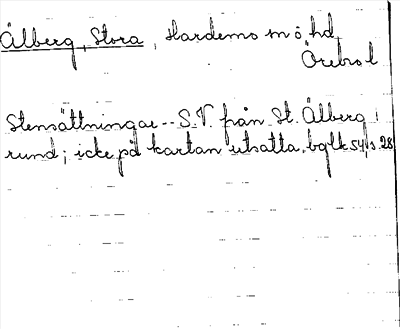 Ålberg, Stora, Hardemo sn ö hd
Örebro l
Stensättningar -- S.V. från St. Ålberg i
rund; icke på kartan utsatta, bglk 54, s. 28